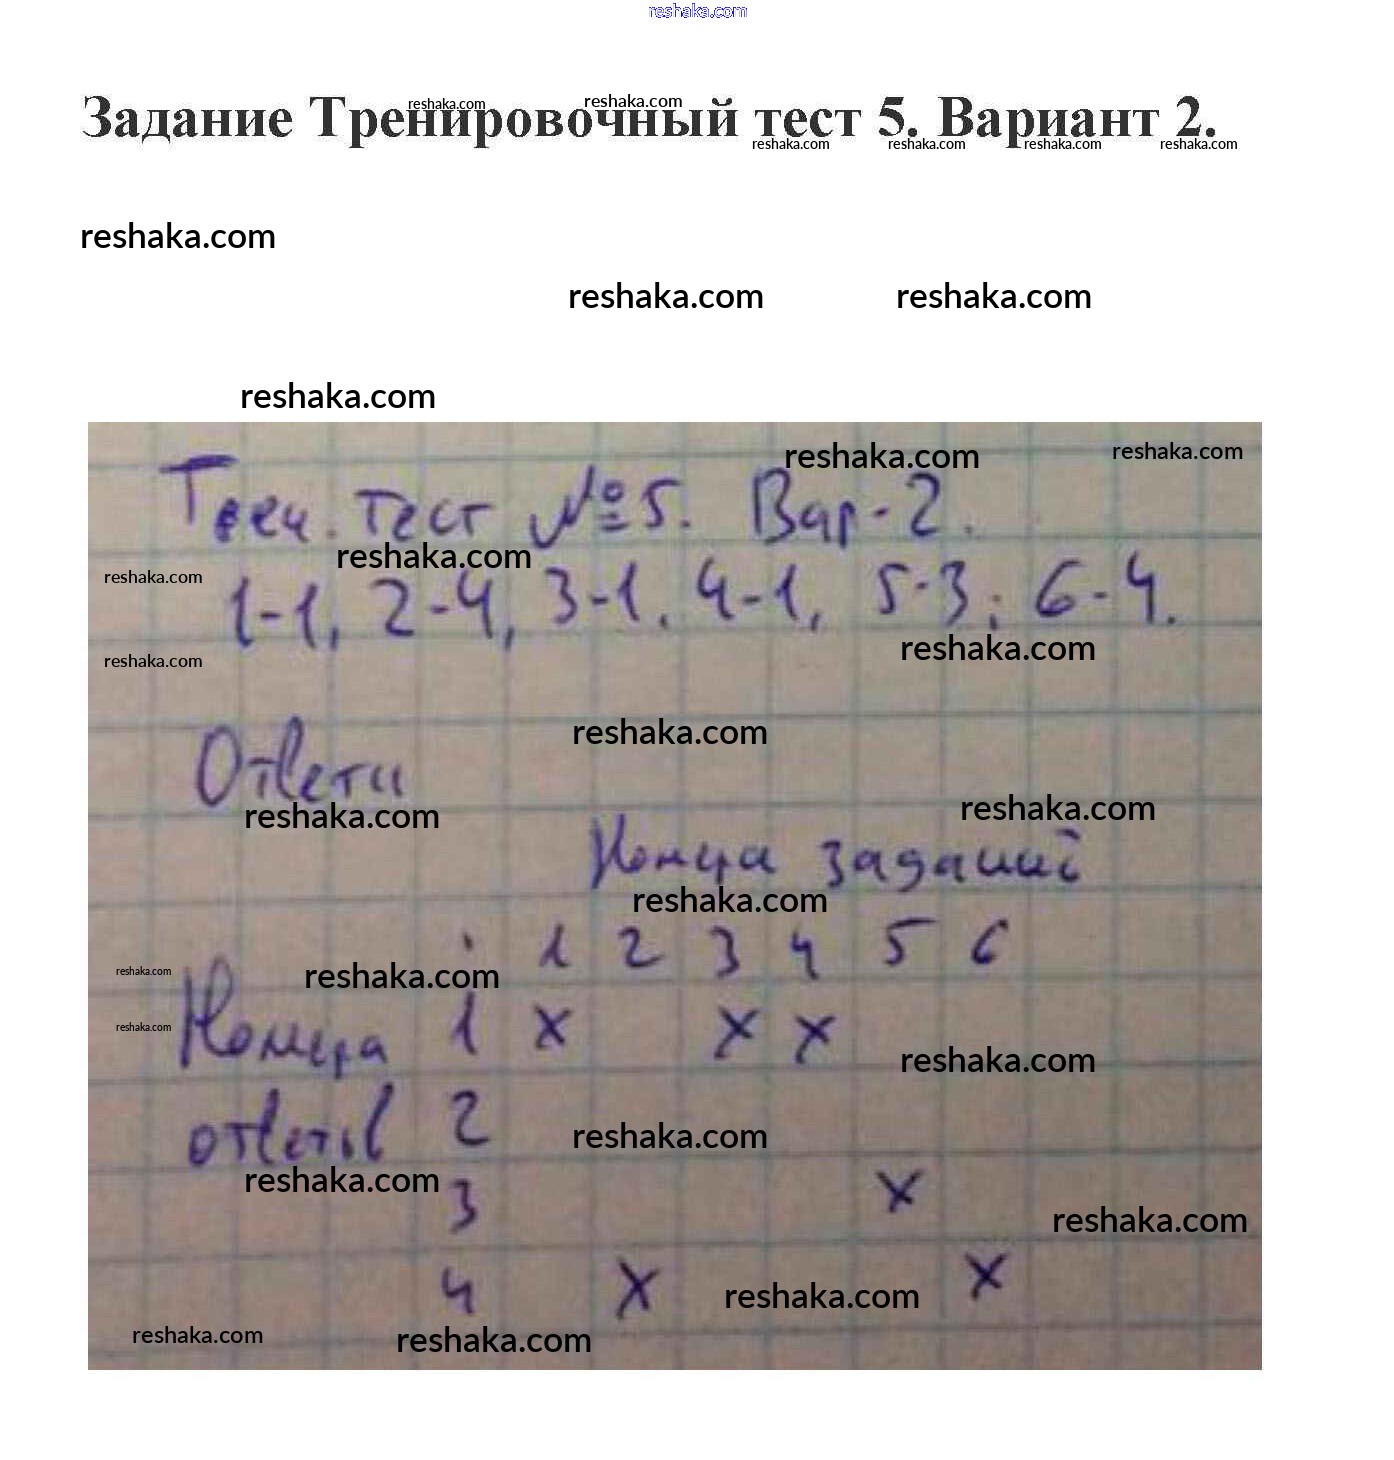 reshaka.com
Задание Тренировочный тест 5. Вариант 2.
reshaka.com reshaka.com
reshaka.com reshaka.com reshaka.com reshaka.com
reshaka.com
reshaka.com reshaka.com
reshaka.com
reshaka.com reshaka.com
Трен. Тест №5. Вар-2.
reshaka.com
reshaka.com
1-1, 2-4, 3-1, 4-1, 5-3; 6-4.
reshaka.com
reshaka.com
reshaka.com
Ответы
reshaka.com reshaka.com
Номера заданий
reshaka.com
1 2 3 4 5 6
reshaka.com reshaka.com
Номера 1 х х х
reshaka.com
reshaka.com
ответов 2
reshaka.com
reshaka.com
3 х
reshaka.com
4 х х
reshaka.com
reshaka.com reshaka.com